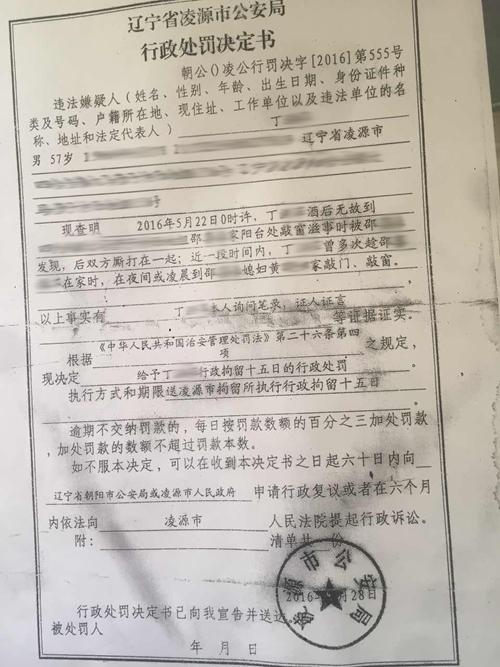 辽宁省凌源市公安局
行政处罚决定书
朝公()凌公行罚决字[2016]第555号
违法嫌疑人(姓名、性别、年龄、出生日期、身份证件种
类及号码、户籍所在地、现住址、工作单位以及违法单位的名
称、地址和法定代表人) 丁
男 57岁 辽宁省凌源市
号
现查明 2016年5月22日0时许,丁 酒后无故到
邵 家阳台处敲窗滋事时被邵
发现,后双方厮打在一起;近一段时间内,丁 曾多次趁邵
在家时,在夜间或凌晨到邵 媳妇黄 家敲门、敲窗。
以上事实有 丁 本人询问笔录,证人证言 等证据证实。
根据 《中华人民共和国治安管理处罚法》第二十六条第四项 之规定,
现决定 给予丁 行政拘留十五日的行政处罚
执行方式和期限 送凌源市拘留所执行行政拘留十五日
逾期不交纳罚款的,每日按罚款数额的百分之三加处罚款
,加处罚款的数额不超过罚款本数。
如不服本决定,可以在收到本决定书之日起六十日内向
辽宁省朝阳市公安局或凌源市人民政府 申请行政复议或者在六个月
内依法向 凌源市 人民法院提起行政诉讼。
附: 清单共 份
凌源市公安局
2016 月28日
行政处罚决定书已向我宣告并送达。
被处罚人
年 月 日